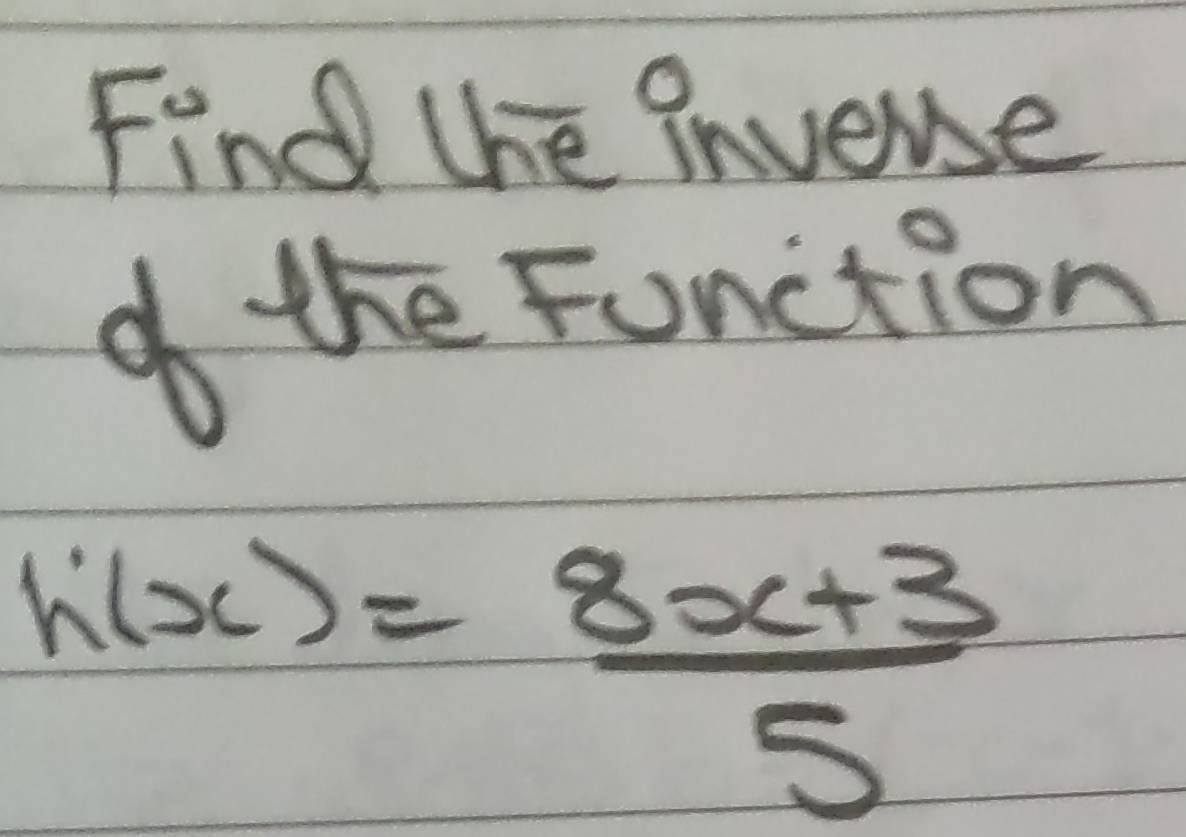 Find the inverse
of the Function
h(x) = 8x+3
5